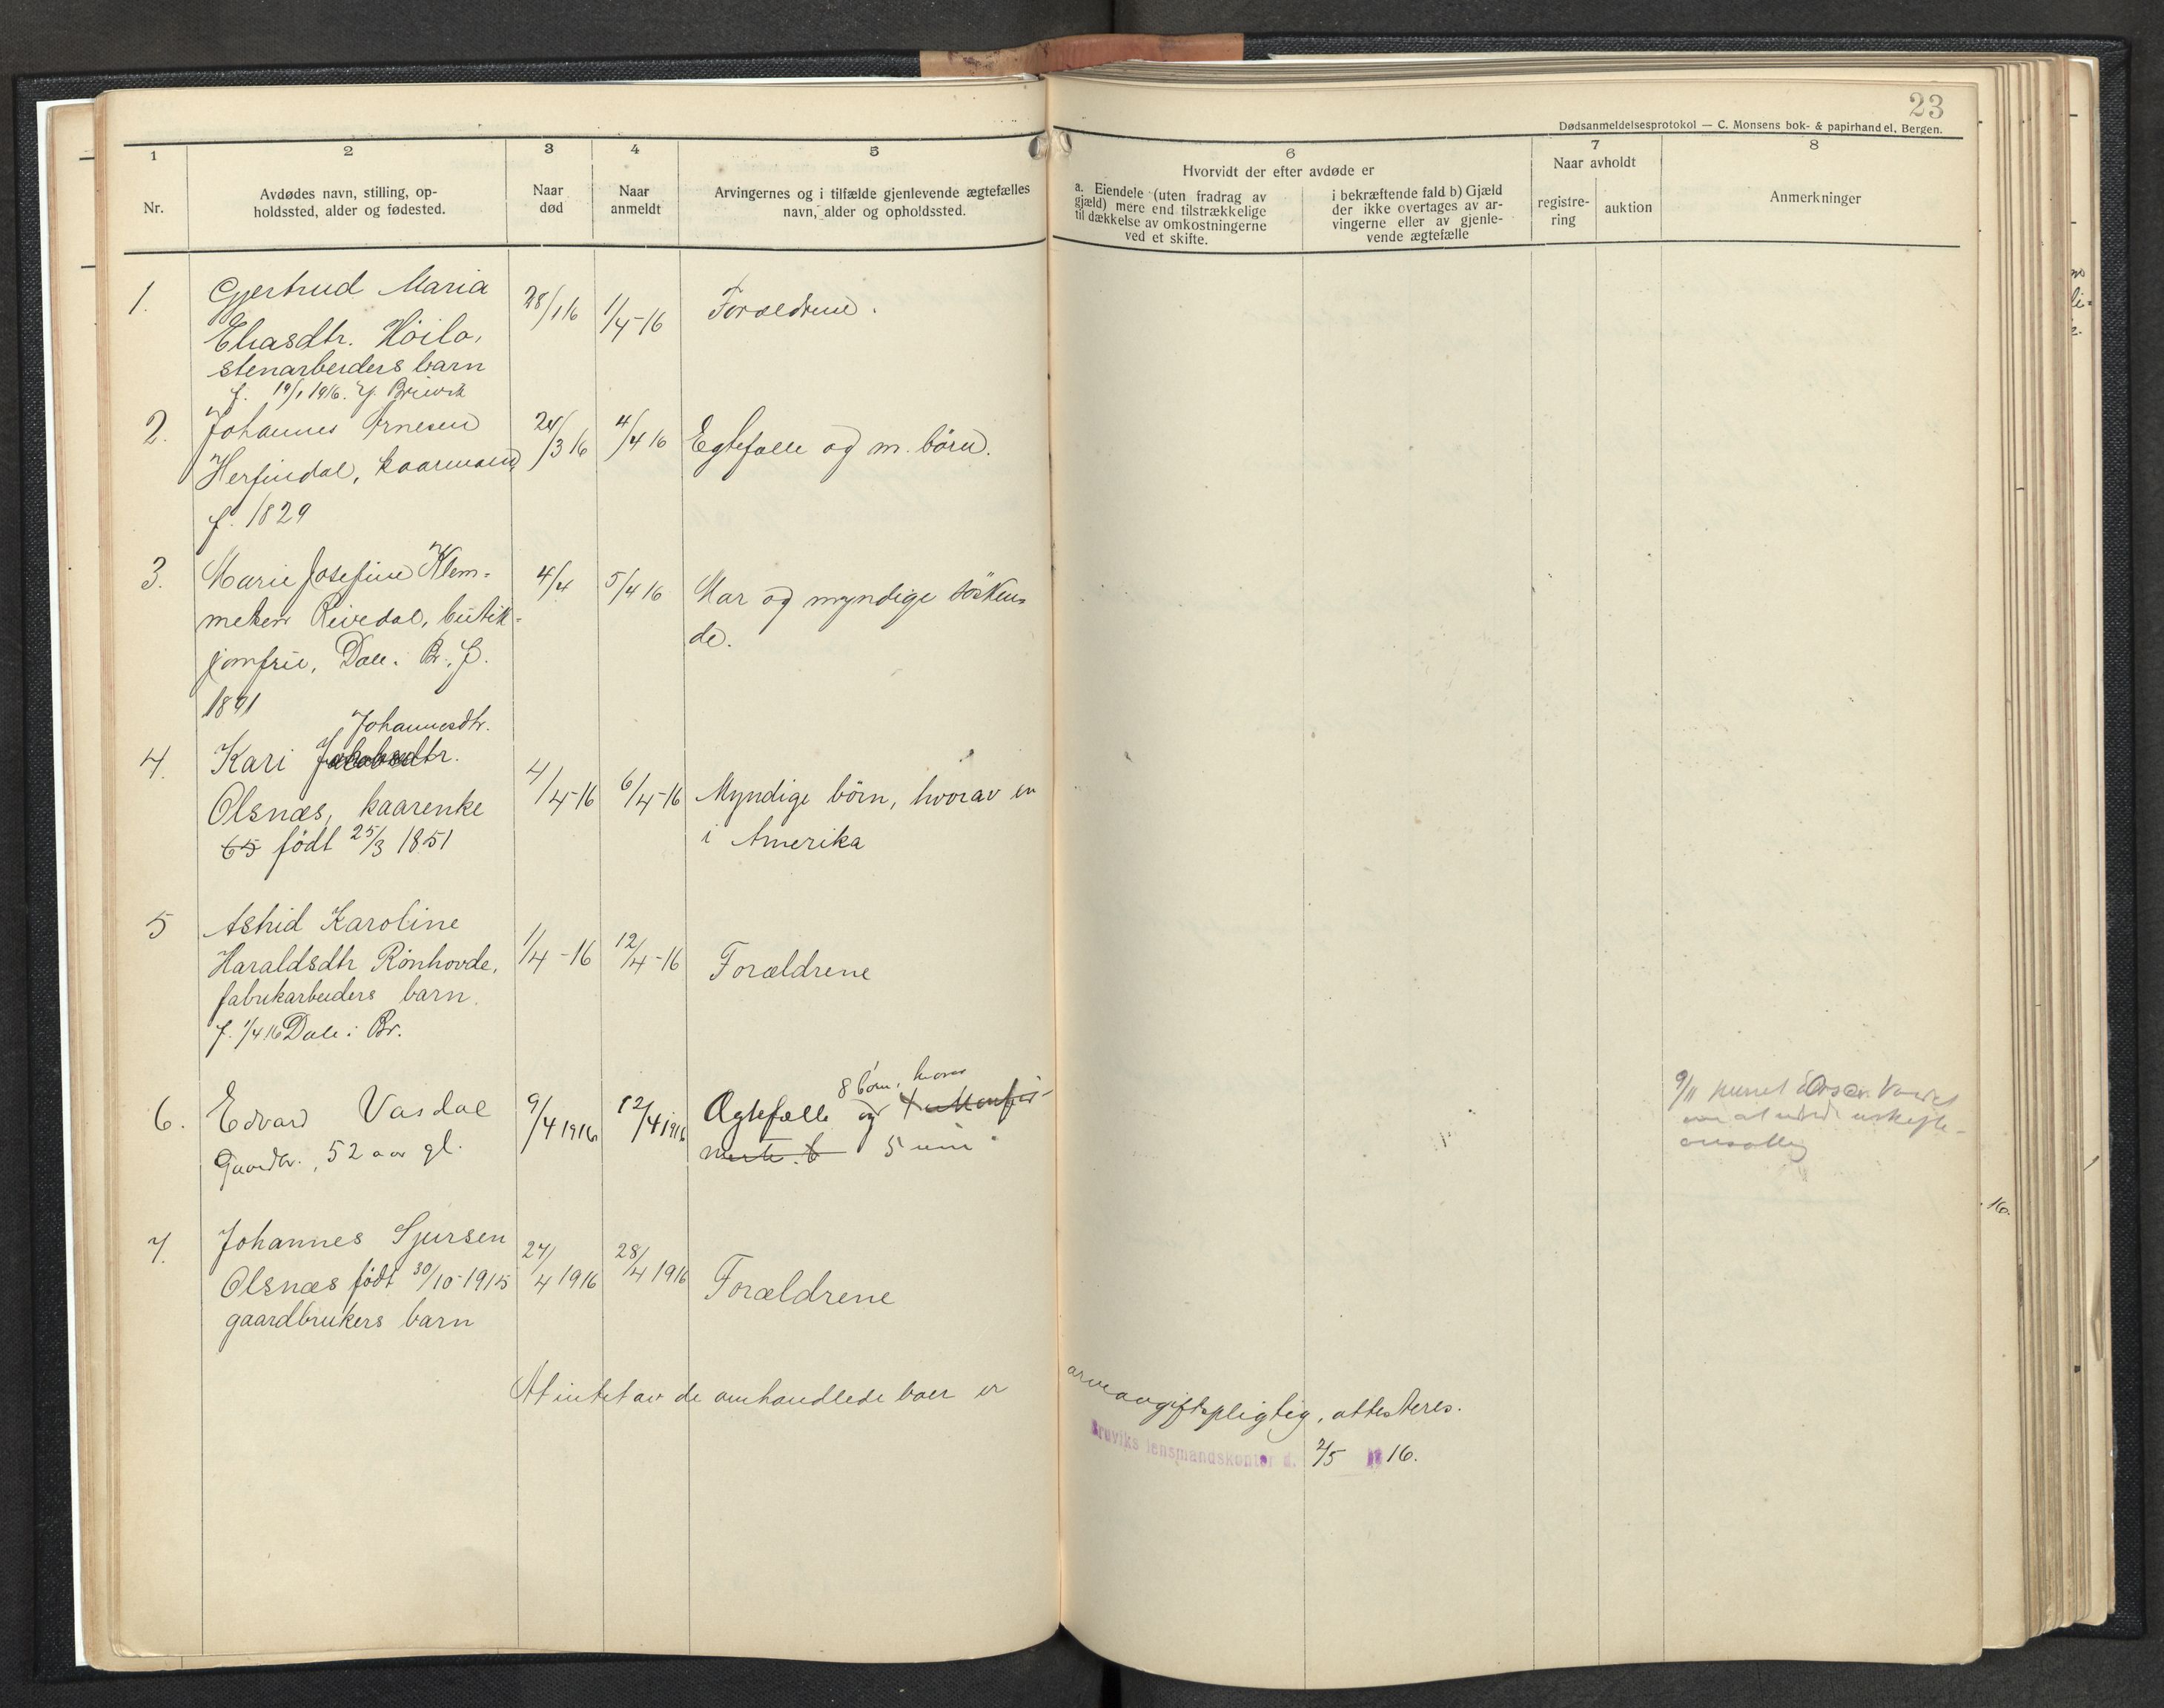 23
Dødsanmeldelsesprotokol — C. Monsens bok- & papirhandel, Bergen.
1
Nr.
2
Avdødes navn, stilling, op-
holdssted, alder og fødested.
3
Naar
død
4
Naar
anmeldt
5
Arvingernes og i tilfælde gjenlevende ægtefælles
navn, alder og opholdssted.
6
Hvorvidt der efter avdøde er
a. Eiendele (uten fradrag av
gjæld) mere end tilstrækkelige
til dækkelse av omkostningerne
ved et skifte.
i bekræftende fald b) Gjæld
der ikke overtages av ar-
vingerne eller av gjenle-
vende ægtefælle
7
Naar avholdt
registre-
ring
auktion
8
Anmerkninger
1. Gjertrud Maria 28/1 16 1/4-16 Forældrene.
Eliasdtr. Höilo,
stenarbeiders barn
f. 19/1 1916. Bruvik
2. Johannes Arnesen 24/3 16 4/4 16 Egtefælle og m. börn.
Herfindal, kaarmand,
f. 1829
3. Marie Josefine Klem- 4/4 5/4 16 Mor og myndige sösken-
metsen Reivedal, butik- de.
jomfru, Dale i Br. f.
1891
Johannesdtr.
4. Kari Jakobsdtr. 4/4-16 6/4-16 Myndige börn, hvorav en
Olsnæs, kaarenke i Amerika
65 født 25/3 1851
5 Astrid Karoline 1/4-16 12/4-16 Forældrene
Haraldsdtr Rønhovde,
fabrikarbeiders barn.
f. 1/4 16 Dale i Br.
8 börn, hvorav
6. Edvard Vasdal 9/4 1916 12/4 1916 Ægtefælle og 4 ukonfir-
Gaardbr., 52 aar gl. merte b 5 um
9/11
7. Johannes Sjursen 27/4 1916 28/4 1916 Forældrene
Olsnæs født 30/10-1915
gaardbrukers barn
At intet av de omhandlede boer er arveavgiftspligtig, attesteres.
Bruviks lensmandskontor d. 2/5 19 16.
16.